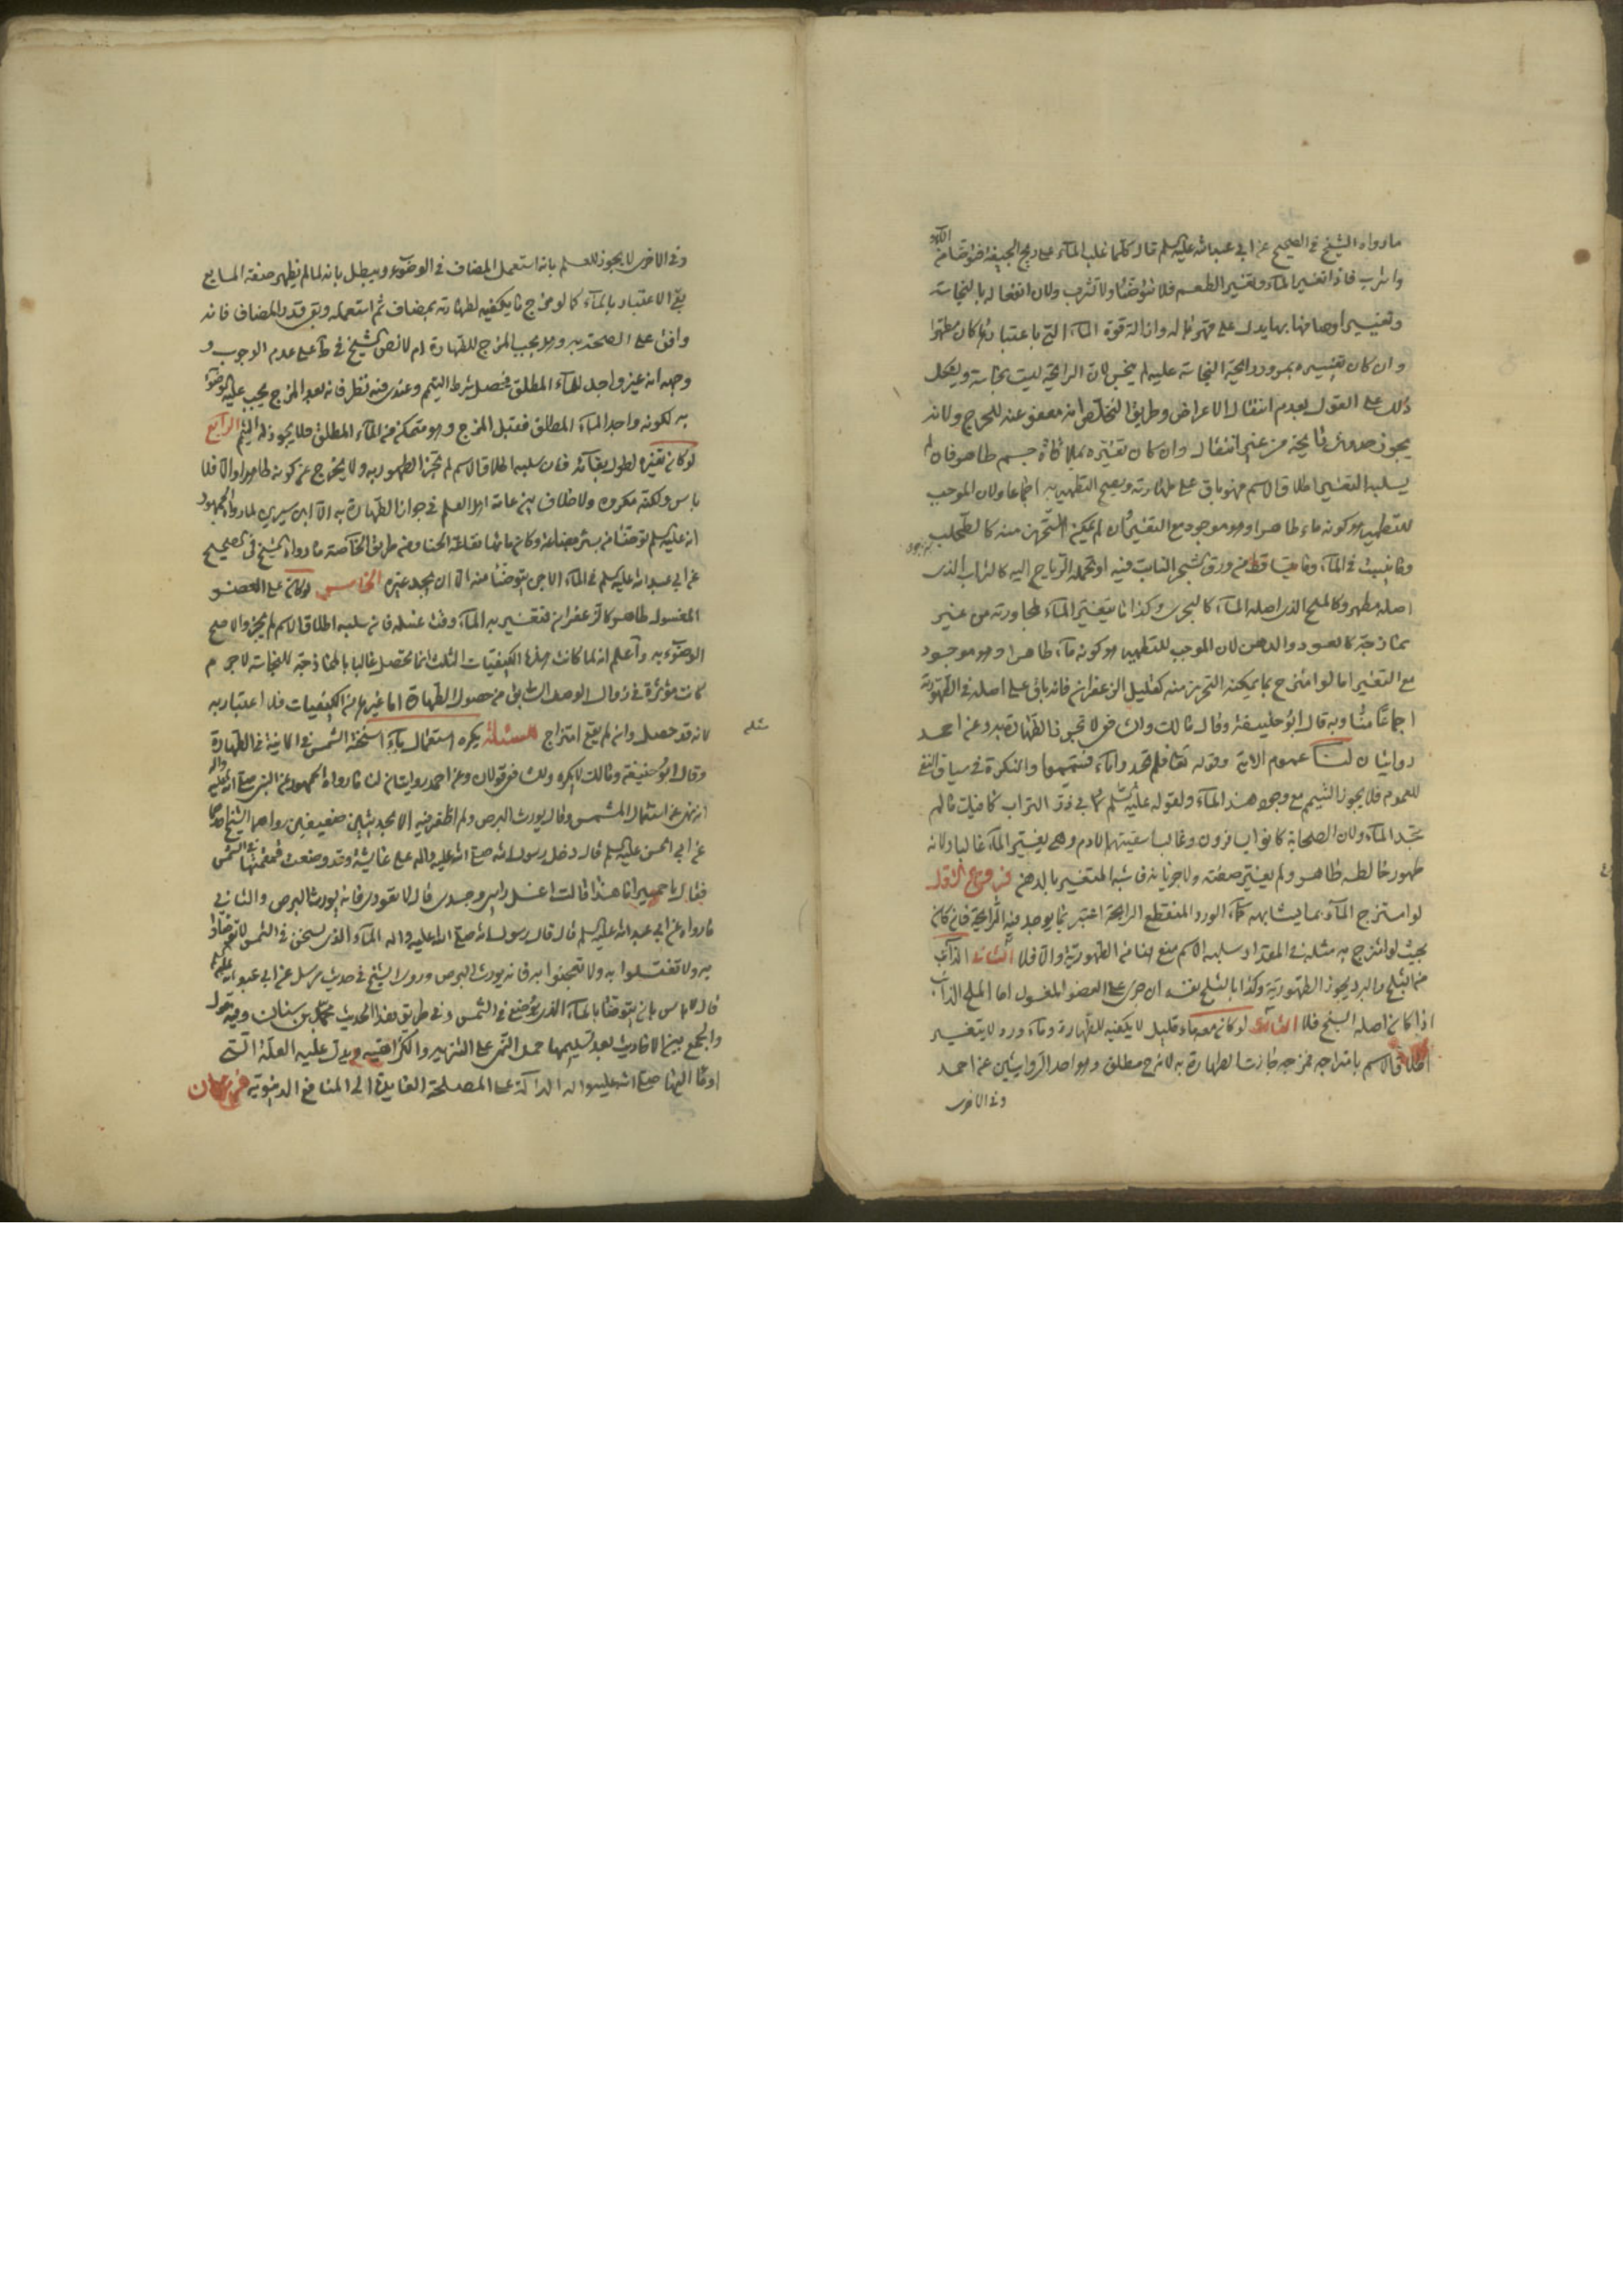 ما رواه الشيخ في الصحيح عن ابي عبد الله عليه السلم قال كلما غلب الماء على ريح الجيفة فتوضأ من الماء
واشرب فاذا تغير الماء وتغير الطعم فلا تتوضأ ولا تشرب ولان انفعاله بالنجاسة
وتغيير اوصافها بها يدل على قهرها له وازالة قوة الماء التي باعتبارها كان مطهرا
وان كان تغييره بمرور رايحة النجاسة عليه لم ينجس لان الرايحة ليست نجاسة ويشكل
ذلك على القول بعدم انتقال الاعراض وطريق التخلص انه معفو عنه للحرج ولانه
يجوز حدوث رايحة من غير انتقال وان كان تغيره بملاقاة جسم طاهر فان لم
يسلبه التغير اطلاق الاسم فهو باق على طهارته ويصح التطهير به اجماعا ولان الموجب
للتطهير هو كونه ماء طاهرا وهو موجود مع التغير فان لم يمكن التحرز منه كالطحلب
وما ينبت في الماء وما يتساقط من ورق الشجر النابت فيه او تحمله الرياح اليه كالتراب الذي
اصله مطهر وكالملح الذي اصله الماء كالبحري وكذا ما يتغير الماء لمجاورته من غير
ممازجة كالعود والدهن لان الموجب للتطهير هو كونه ماء طاهرا وهو موجود
مع التغير اما لو امتزج بما يمكنه التحرز منه كقليل الزعفران فانه باق على اصله في الطهورية
اجماعا منا وبه قال ابو حنيفة وقال مالك والشافعي لا تجوز الطهارة به وعن احمد
روايتان لنا عموم الاية وقوله تعالى فلم تجدوا ماء فتيمموا والنكرة في سياق النفي
للعموم فلا يجوز التيمم مع وجود هذا الماء ولقوله عليه السلم لابي ذر التراب كافيك ما لم
تجد الماء ولان الصحابة كانوا يسافرون وغالب اسقيتهم الادم وهي يغير الماء غالبا ولانه
طهور خالطه طاهر ولم يغير صفته ولا جريانه فاشبه المتغير بالدهن فروع الاول
لو امتزج الماء بما يشابهه كماء الورد المنقطع الرايحة اعتبر بما يوجد فيه الرايحة فان كان
بحيث لو امتزج به مثله في المقدار سلبه الاسم منع هنا من الطهورية والا فلا الثاني الذائب
من الثلج والبرد يجوز الطهورية وكذا بالثلج نفسه ان جرى على العضو المغسول اما الملح الذائب
اذا كان اصله السبخ فلا الثالث لو كان معه ماء قليل لا يكفيه للطهارة وماء ورد لا يتغير
اطلاق الاسم بامتزاجه فمزجه جازت الطهارة به لانه مزج مطلق وهو احد الروايتين عن احمد
وفي الاخرى
وفي الاخرى لا يجوز للعلم بانه استعمل المضاف في الوضوء ويبطل بانه لما لم يظهر صفة المايع
بقي الاعتبار بالماء كما لو مزج ما يكفيه لطهارته بمضاف ثم استعمله وبقي قدر المضاف فانه
وافق على الصحة به وهل يجب المزج للطهارة ام لا نص الشيخ في ط على عدم الوجوب و
وجهه انه غير واجد للماء المطلق فحصل شرط التيمم وعندي فيه نظر فانه بعد المزج يجب عليه الوضوء
به لكونه واجد الماء المطلق فقبل المزج هو متمكن من الماء المطلق فلا يجوز له التيمم الرابع
لو كان تغيره لطول بقائه فان سلبه اطلاق الاسم لم تجز الطهور به ولا يخرج عن كونه طاهرا والا فلا
باس ولكنه مكروه ولا خلاف بين عامة اهل العلم في جواز الطهارة به الا ابن سيرين لما رواه الجمهور
انه عليه السلم توضأ من بئر بضاعة وكان ماؤها نقاعة الحنا ومن طريق الخاصة ما رواه الشيخ في الصحيح
عن ابي عبد الله عليه السلم في الماء الاجن يتوضأ منه الا ان يجد غيره الخامس لو كان على العضو
المغسول طاهر كالزعفران فتغير به الماء وقت غسله فان سلبه اطلاق الاسم لم يجز والا صح
الوضوء به واعلم انه لما كانت هذه الكيفيات الثلث انما تحصل غالبا بالممازجة للنجاسة لا جرم
كانت مؤثرة في زوال الوصف السابق من حصول الطهارة اما غيرها من الكيفيات فلا اعتبار به
لانه قد حصل وان لم يقع امتزاج المسئلة يكره استعمال ماء اسخنته الشمس في الانية في الطهارة
مسئلة
وقال ابو حنيفة ومالك لا يكره وللشافعي قولان وعن احمد روايتان لنا ما رواه الجمهور عن النبي صلى الله عليه واله
انه نهى عن استعمال المشمس وقال يورث البرص ولم اظفر فيه الا بحديثين ضعيفين رواهما الشيخ احدهما
عن ابي الحسن عليه السلم قال دخل رسول الله صلى الله عليه واله على عايشة وقد وضعت قمقمتها في الشمس
فقال يا حميرا ما هذا قالت اغسل راسي وجسدي قال لا تعودي فانه يورث البرص والثاني
ما رواه عن ابي عبد الله عليه السلم قال قال رسول الله صلى الله عليه واله الماء الذي يسخن في الشمس لا تتوضأوا
به ولا تغتسلوا به ولا تعجنوا به فانه يورث البرص وروى الشيخ في حديث مرسل عن ابي عبد الله عليه السلم
قال لا باس بان يتوضأ بالماء الذي يوضع في الشمس وفي طريق هذا الحديث محمد بن سنان وفيه قول
والجمع بين الاحاديث بعد تسليمها حمل النهي على التنزيه والكراهية ويدل عليه العلة التي
اومأ اليها صلى الله عليه واله الدالة على المصلحة العايدة الى المنافع الدنيوية فرعان